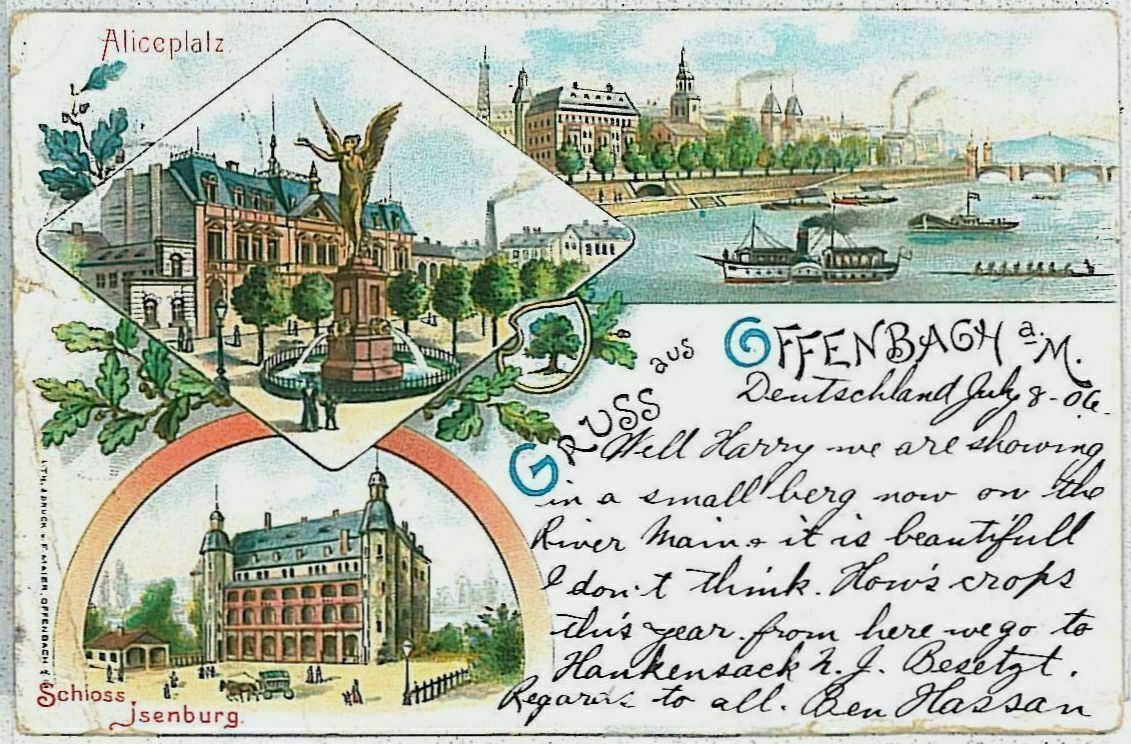 Aliceplatz
Gruss aus Offenbach a. M.
Deutschland July 8-06.
Well Harry we are showing
in a small berg now on the
River Main & it is beautifull
I don't think. How's crops
this year. from here we go to
Hankensack N. J. Besetzt.
Regards to all. Ben Hassan
Schloss Jsenburg.
LITH. & DRUCK v. F. MAIER, OFFENBACH